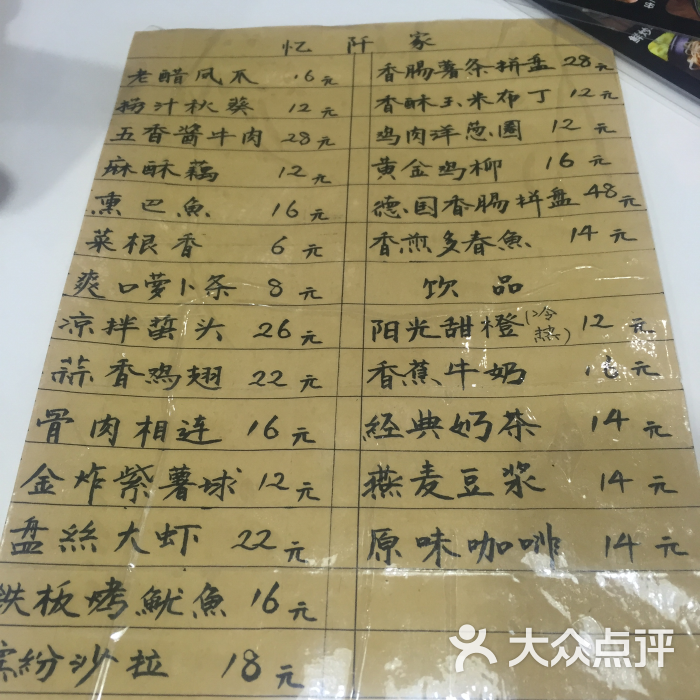 忆阡家
老醋凤爪 16元
捞汁秋葵 12元
五香酱牛肉 28元
麻酥藕 12元
熏巴鱼 16元
菜根香 6元
爽口萝卜条 8元
凉拌蜇头 26元
蒜香鸡翅 22元
骨肉相连 16元
金炸紫薯球 12元
盘丝大虾 22元
铁板烤鱿鱼 16元
缤纷沙拉 18元
香腸薯条拼盘 28元
香酥玉米布丁 12元
鸡肉洋葱圈 12元
黄金鸡柳 16元
德国香腸拼盘 48元
香煎多春魚 14元
饮品
阳光甜橙(冷热) 12元
香蕉牛奶 16元
经典奶茶 14元
燕麦豆浆 14元
原味咖啡 14元
大众点评